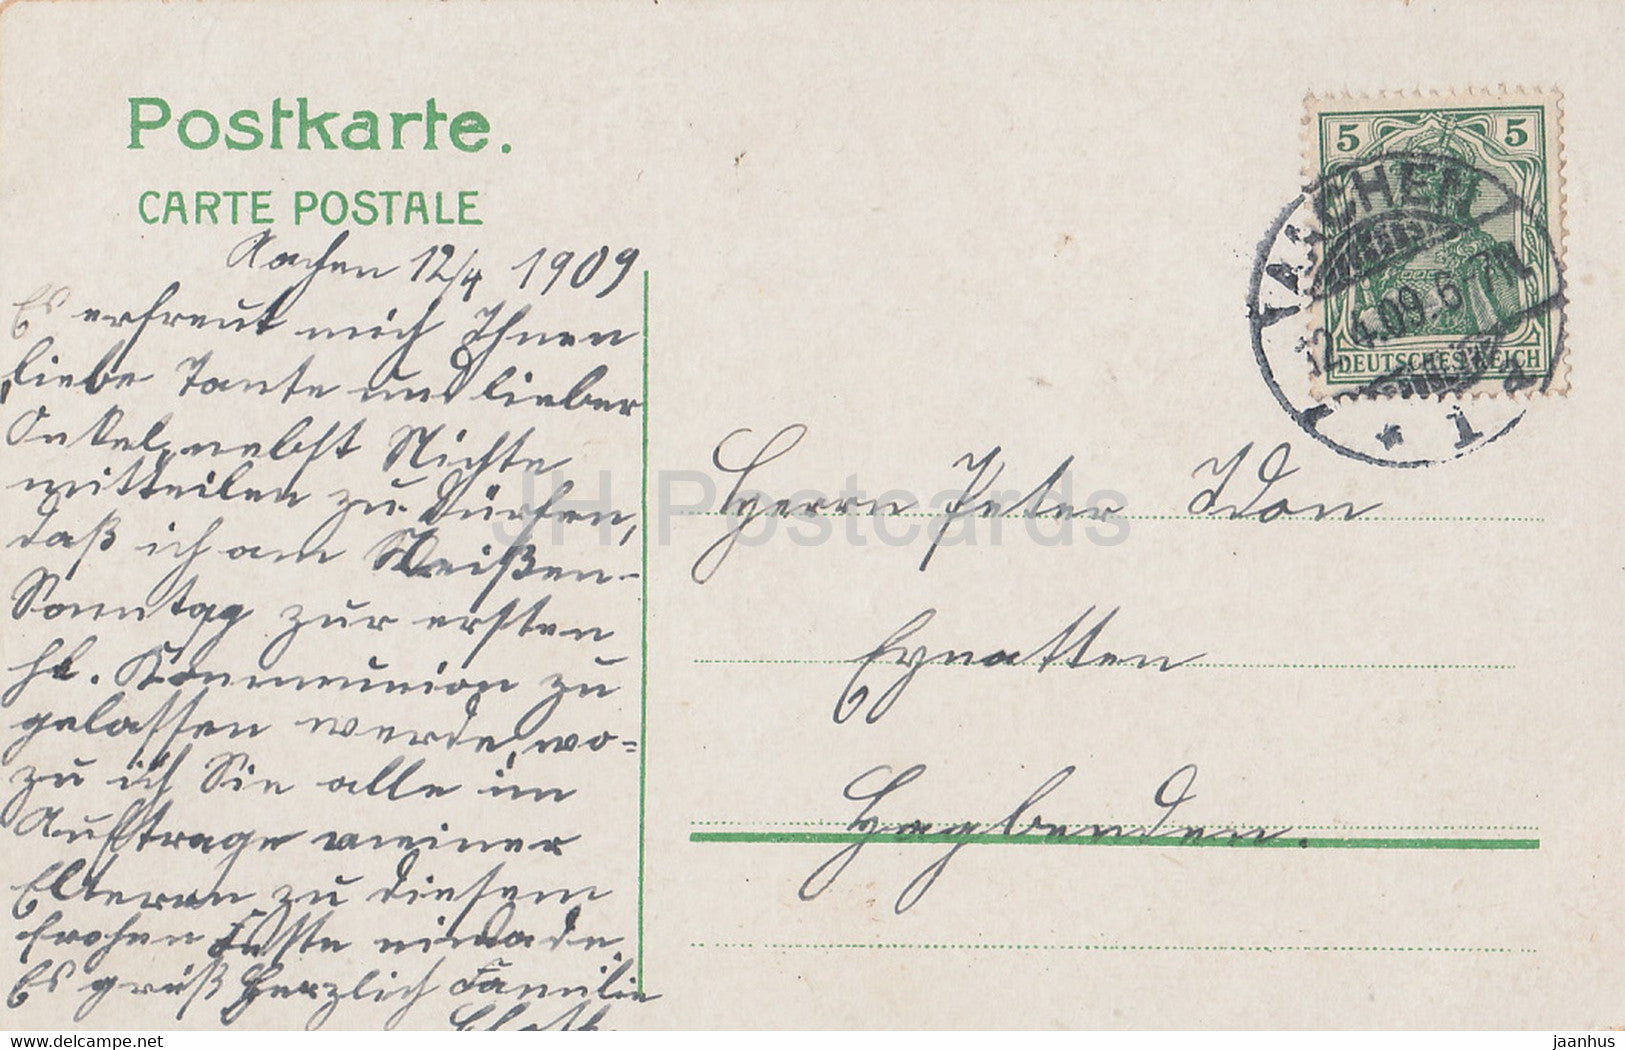 Postkarte.
CARTE POSTALE
Aachen 12/4 1909
Es erfreut mich Ihnen
liebe Tante und lieber
Onkel, nebst Nichte
mitteilen zu dürfen,
daß ich am Weißen-
Sonntag zur ersten
hl. Kommunion zu
gelassen werde, wo=
zu ich Sie alle im
Auftrage meiner
Eltern zu diesem
frohen Feste einlade.
Es grüß Herzlich Familie
5 5
AACHEN
12.4.09.6-7N.
DEUTSCHES REICH
* 1 d
Herrn Peter Idon
Eynatten
Hagbenden.
JH Postcards
hippostcard.com
jaanhus